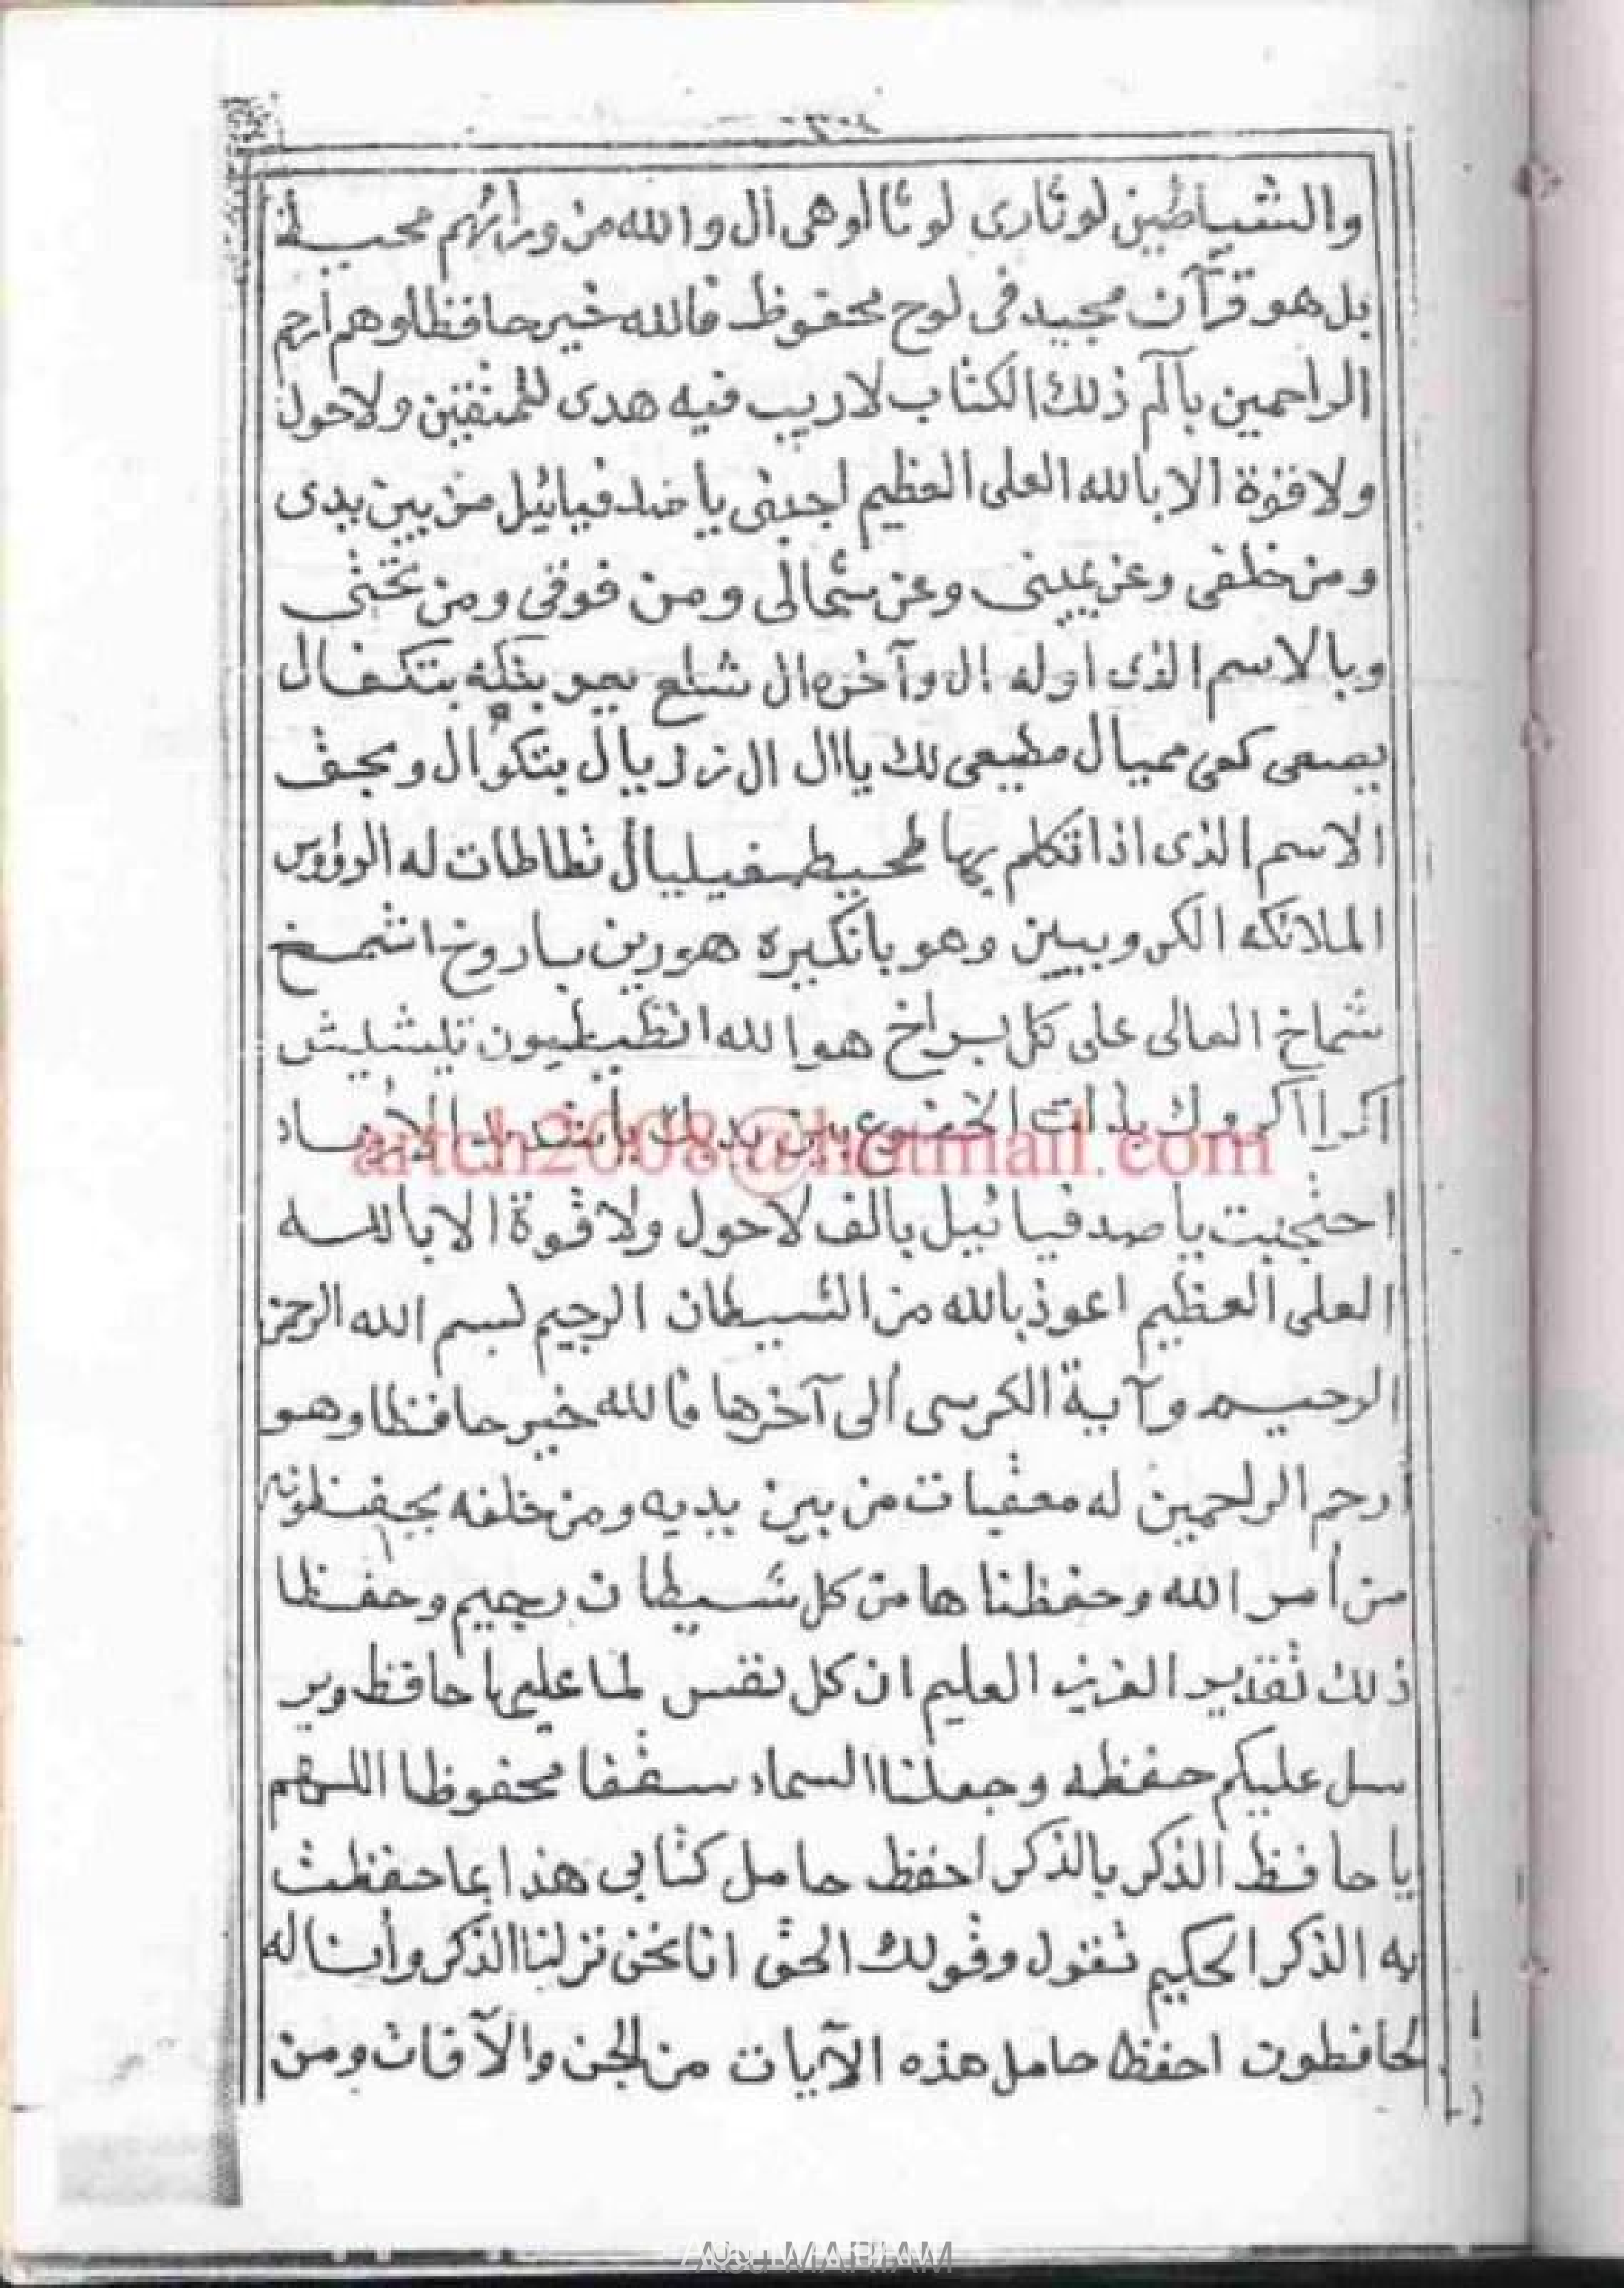 والشياطين لوثارى لوثا اوهى ال والله من ورائهم محيط
بل هو قرآن مجيد في لوح محفوظ فالله خير حافظا وهم ارحم
الراحمين بآلم ذلك الكتاب لا ريب فيه هدى للمتقين ولا حول
ولا قوة الا بالله العلى العظيم اجبنى يا صدفيائيل من بين يدى
ومن خلفى وعن يمينى وعن شمالى ومن فوقى ومن تحتى
وبالاسم الذى اوله ال وآخره ال شلع يعو بتكه بتكفال
بصعى كعى ممیال مطيعى لك يا ال ال زريال بتكوال وبحق
الاسم الذى اذا تكلم بها طحيطمغيليال تطاطات له الرؤوس
الملائكه الكروبيين وهو بانكيره هورين باروخ اشمخ
شماخ العالى على كل براخ هو الله انظيطيون تليشليش
بذلت الخضوع بين يديك يا
احتجبت يا صدفيائيل بالف لا حول ولا قوة الا بالله
العلى العظيم اعوذ بالله من الشيطان الرجيم بسم الله الرحمن
الرحيم وآية الكرسى الى آخرها فالله خير حافظا وهو
ارحم الراحمين له معقبات من بين يديه ومن خلفه يحفظونه
من أمر الله وحفظناها من كل شيطان رجيم وحفظا
ذلك تقدير العزيز العليم ان كل نفس لما عليها حافظ وير
سل عليكم حفظه وجعلنا السماء سقفا محفوظا اللهم
يا حافظ الذكر بالذكر احفظ حامل كتابى هذا بما حفظت
به الذكر الحكيم تقول وقولك الحق انا نحن نزلنا الذكر وأنا له
لحافظون احفظ حامل هذه الآيات من الجن والآفات ومن
artch2008@hotmail.com
Abu MARIAM